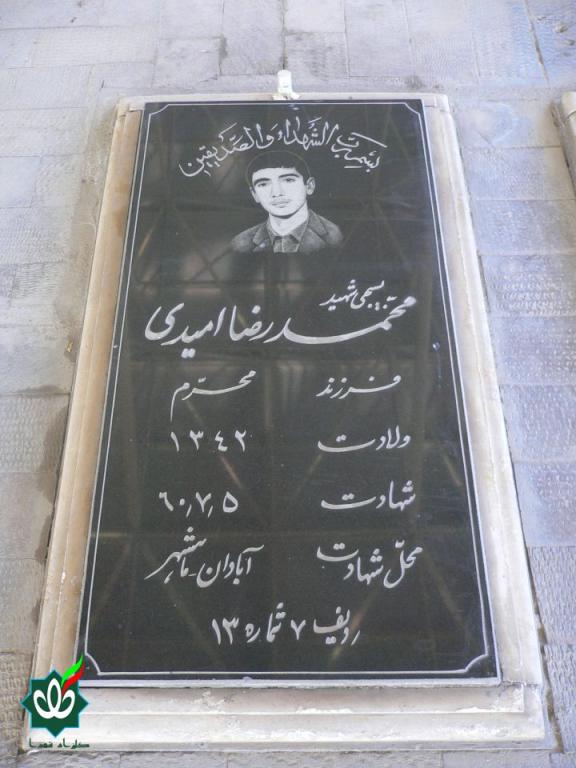 بسم رب الشهداء والصدیقین
بسیجی شهید
محمدرضا امیدی
فرزند محرّم
ولادت ۱۳۴۲
شهادت ۶۰٫۷٫۵
محلّ شهادت آبادان-ماهشهر
ردیف ۷ شماره ۱۳
گلزار شهدا